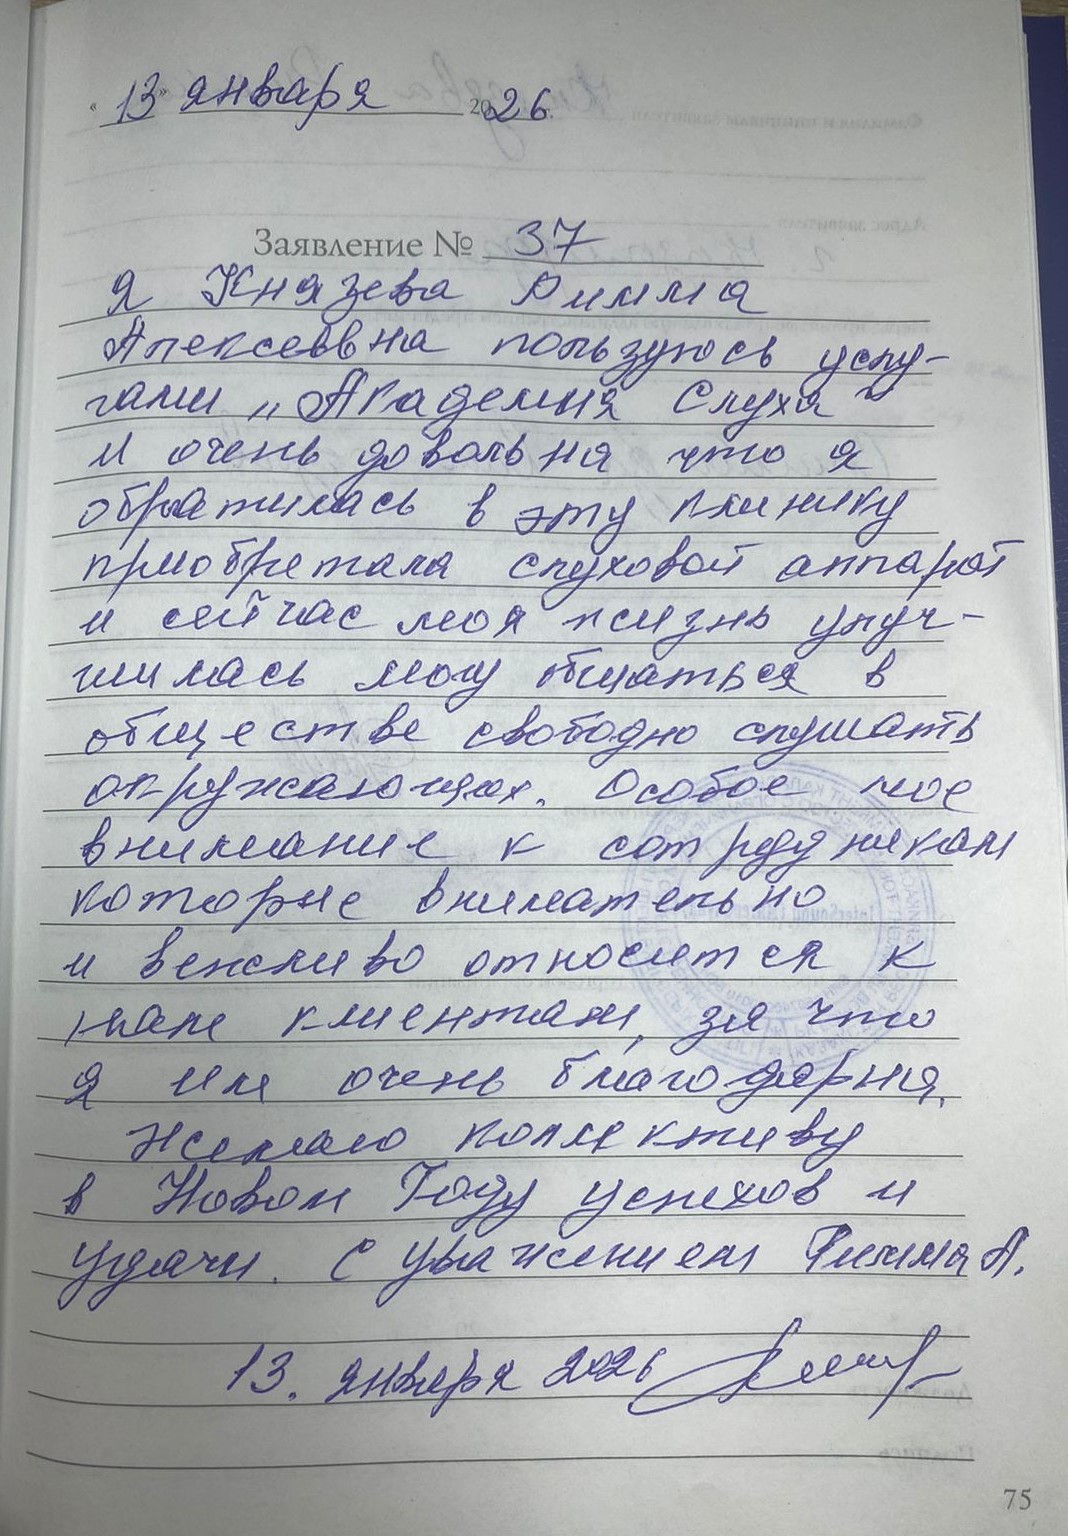 « 13 » января 2026.
Заявление № 37
Я Князева Римма
Алексеввна пользуюсь услу-
гами „Академия Слуха"
и очень довольна что я
обратилась в эту клинику
приобретала слуховой аппарат
и сейчас моя жизнь улуч-
шилась могу общаться в
обществе свободно слушать
окружающих. Особое мое
внимание к сотрудникам
которые внимательно
и вежливо относится к
нам клиентам, за что
я им очень благодарна.
Желаю коллективу
в Новом Году успехов и
удачи. С уважением Римма А.
13. января 2026
75